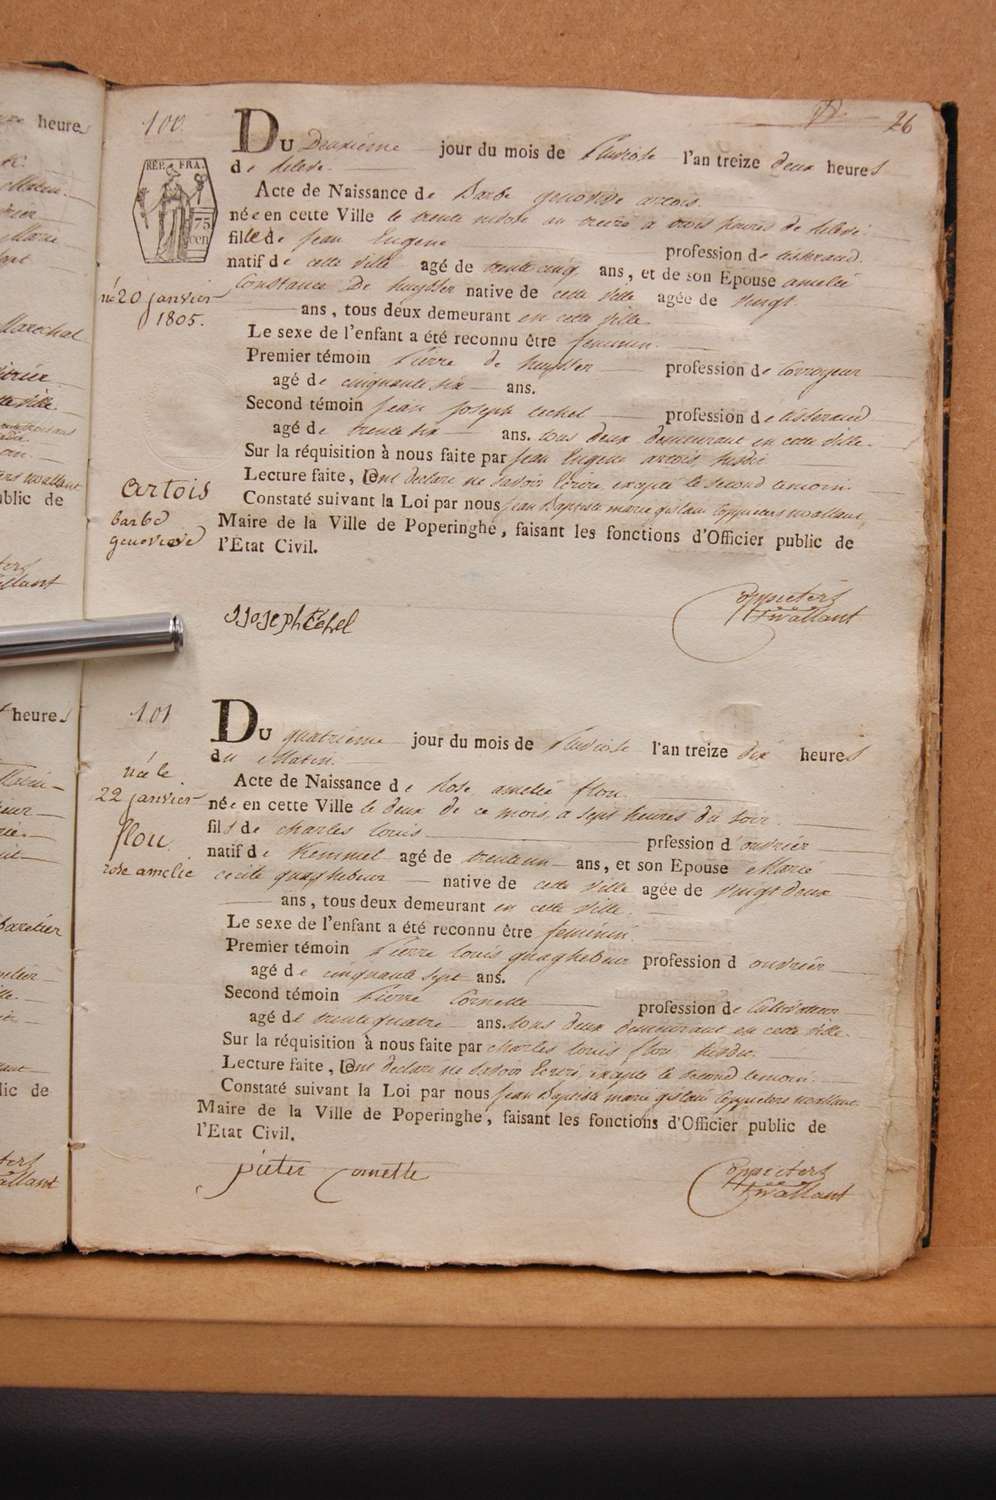 heures
Matin
Marechal
cette ville
wallant
public de
wallant
26
100
RÉP. FRA.
75
cen
né 20 janvier
1805.
Artois
barbe
genovieve
Du Deuxième jour du mois de Pluviose l'an treize deux heures
de Relevé.
Acte de Naissance de Barbe genoveve artois
née en cette Ville le trente nivose an treize à trois heures de Relevé
fille de Jean Eugene profession de tisserand
natif de cette ville agé de trente cinq ans, et de son Epouse amelie
Constance De Huysser native de cette ville agée de vingt
ans, tous deux demeurant en cette ville
Le sexe de l'enfant a été reconnu être feminin.
Premier témoin Pierre de huysser profession de Corroyeur
agé de cinquante six ans.
Second témoin Jean Joseph techel profession de tisserand
agé de trente six ans. tous deux demeurant en cette ville.
Sur la réquisition à nous faite par Jean Eugene artois susdit
Lecture faite, Ont declaré ne savoir Ecrire, excepté le second temoin.
Constaté suivant la Loi par nous Jean Baptiste marie gislain Coppieters wallant,
Maire de la Ville de Poperinghe, faisant les fonctions d'Officier public de
l'Etat Civil.
J Joseph techel
Coppieters
twallant
heures
101
née le
22 janvier
flou
rose amelie
Du quatrième jour du mois de Pluviose l'an treize dix heures
du Matin.
Acte de Naissance de Rose amelie flou.
née en cette Ville le deux de ce mois, à sept heures du soir.
fils de Charles Louis prfession d'ouvrier
natif de Kemmel agé de trente un ans, et son Epouse Marie
cecile quaghebeur native de cette ville agée de vingt deux
ans, tous deux demeurant en cette ville.
Le sexe de l'enfant a été reconnu être féminin.
Premier témoin Pierre Louis quaghebeur profession d ouvrier
agé de cinquante sept ans.
Second témoin Pierre Cornette profession de Cultivateur
agé de trente quatre ans. tous deux demeurant en cette ville.
Sur la réquisition à nous faite par Charles Louis flou susdit.
Lecture faite, Ont declaré ne savoir Ecrire excepté le second temoin.
Constaté suivant la Loi par nous Jean Baptiste marie gislain Coppieters wallant
Maire de la Ville de Poperinghe, faisant les fonctions d'Officier public de
l'Etat Civil.
pieter Cornette
Coppieters
twallant